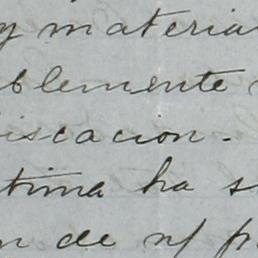 y materia
blemente
iscacion.
tima ha s
n de n/ p